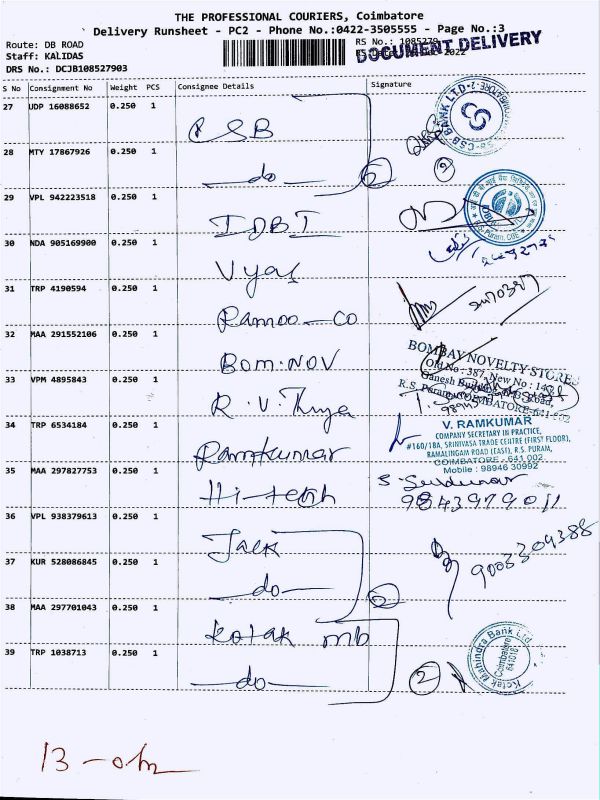 THE PROFESSIONAL COURIERS, Coimbatore
Delivery Runsheet - PC2 - Phone No.:0422-3505555 - Page No.:3
Route: DB ROAD
Staff: KALIDAS
DRS No.: DCJB108527903
DOCUMENT DELIVERY
S No Consignment No Weight PCS Consignee Details Signature
27 UDP 16088652 0.250 1 CSB
28 MTY 17867926 0.250 1 —do—
29 VPL 942223518 0.250 1 IDBI
30 NDA 905169900 0.250 1 Vyas
31 TRP 4190594 0.250 1 Ramoo—CO
32 MAA 291552106 0.250 1 Bom.NOV
BOMBAY NOVELTY STORES
33 VPM 4895843 0.250 1 R.V.
34 TRP 6534184 0.250 1 Ramkumar
V. RAMKUMAR
COMPANY SECRETARY IN PRACTICE,
#160/18A, SRINIVASA TRADE CENTRE (FIRST FLOOR),
RAMALINGAM ROAD (EAST), R.S. PURAM,
COIMBATORE - 641 002
Mobile : 98946 30992
35 MAA 297827753 0.250 1 Hi-tech
9843979011
36 VPL 938379613 0.250 1 Jack
37 KUR 528086845 0.250 1 —do—
9003309388
38 MAA 297701043 0.250 1 Kotak mb
39 TRP 1038713 0.250 1 —do— 2
Kotak Mahindra Bank Ltd
Coimbatore
641018
13 -